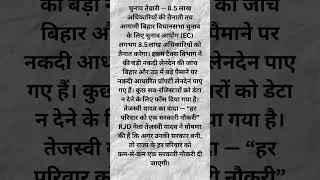 चुनाव तैयारी — 8.5 लाख
अधिकारियों की तैनाती तय
आगामी बिहार विधानसभा चुनाव
के लिए चुनाव आयोग (EC)
लगभग 8.5 लाख अधिकारियों को
तैनात करेगा। इंकम टैक्स विभाग ने
की बड़ी नकदी लेनदेन की जांच
बिहार और उप्र में बड़े पैमाने पर
नकदी आधारित प्रॉपर्टी लेनदेन पाए
गए हैं। कुछ सब-रजिस्टरों को डेटा
न देने के लिए फॉर्म दिया गया है।
तेजस्वी यादव का वादा — “हर
परिवार को एक सरकारी नौकरी”
RJD नेता तेजस्वी यादव ने घोषणा
की है कि अगर उनकी सरकार बनी,
तो राज्य के हर परिवार को
कम-से-कम एक सरकारी नौकरी दी
जाएगी।